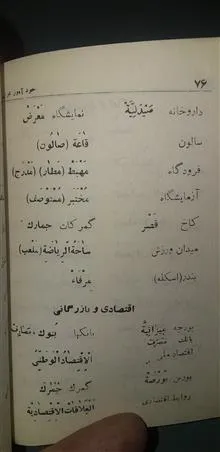 ۷۶ خود آموز
داروخانه صَیْدَلِیَّة نمایشگاه مَعْرَض
سالون قاعَة (صالُون)
فرودگاه مَهْبَط (مَطار) (مَدْرَج)
آزمایشگاه مُخْتَبَر (مُسْتَوْصَف)
کاخ قَصْر گمرکات جمارك
میدان ورزش ساحَةُ الرِّیاضَةِ (مَلْعَب)
بندر (اسکله) مِرْفَاء
اقتصادی و بازرگانی
بودجه مِیْزانِیَّة بانکها بُنُوك، مَصارِف
بانك مَصْرَف
اقتصاد ملی الْاِقْتِصادُ الْوَطَنِیُّ
بورس بُورْصَة گمرك جُمْرُك
روابط اقتصادی العَلاقاتُ الْاِقْتِصادِیَّة